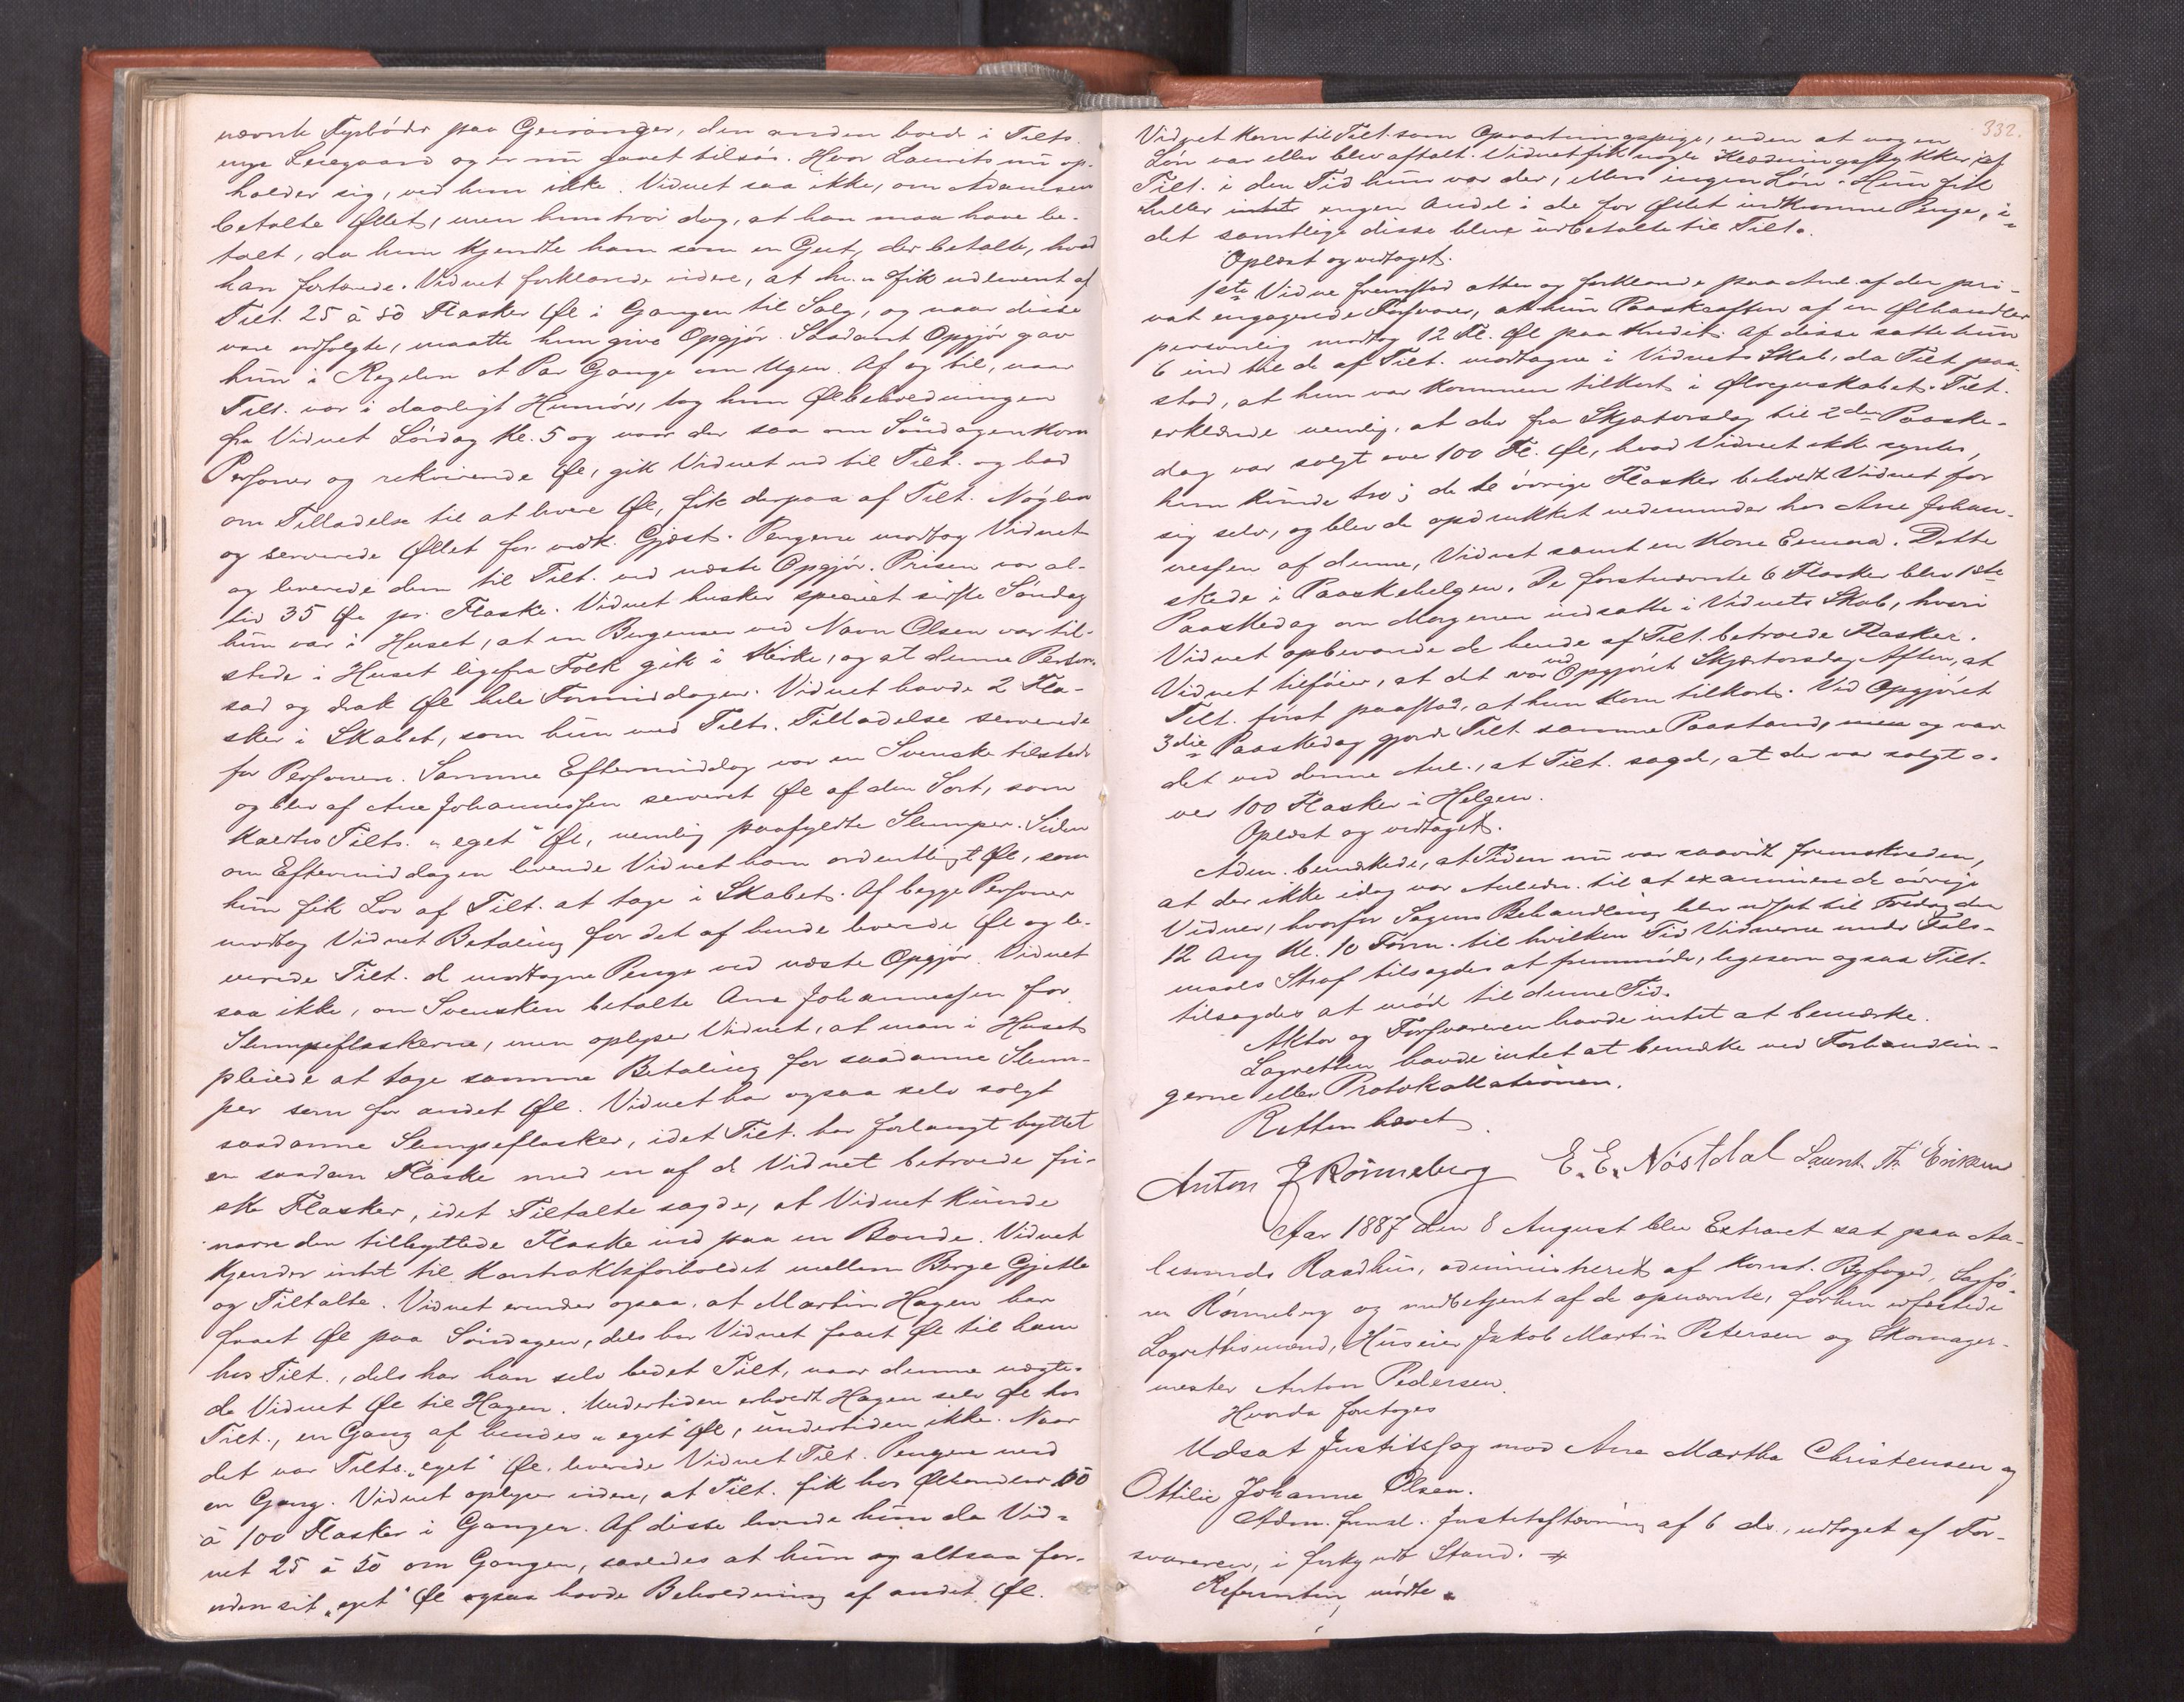 nævnte Fyrbøder paa Geiranger, den anden boede i Tilts.
nye Leiegaard og er nu faret tilsøs. Hvor Laurits nu op-
holder sig, ved hun ikke. Vidnet saa ikke, om Adamsen
betalte Øllet, men hun tror dog, at han maa have be-
talt, da hun kjendte ham som en Gut, der betalte, hvad
han fortærede. Vidnet forklarede videre, at hun fik udleveret af
Tilt. 25 à 30 Flasker Øl i Gangen til Salg, og naar disse
vare udsolgte, maatte hun give Opgjør. Saadant Opgjør gav
hun i Regelen et Par Gange om Ugen. Af og til, naar
Tilt. var i daarligt Humør, tog hun Ølbeholdningen
fra Vidnet Lørdag Kl. 5 og naar der saa om Søndagen kom
Personer og rekvirerede Øl, gik Vidnet ud til Tilt. og bad
om Tilladelse til at levere Øl, fik derpaa af Tilt. Nøglen
og serverede Øllet for vedk. Gjæst. Pengene modtog Vidnet
og leverede dem til Tilt. ved næste Opgjør. Prisen var al-
tid 35 Øre pr. Flaske. Vidnet husker specielt sidste Søndag
hun var i Huset, at en Bergenser ved Navn Olsen var til-
stede i Huset ligefra Folk gik i Kirke, og at denne Person
sad og drak Øl hele Formiddagen. Vidnet havde 2 Fla-
sker i Skabet, som hun med Tilts. Tilladelse serverede
for Personen. Samme Eftermiddag var en Svenske tilstede
og blev af Ane Johannessen serveret Øl af den Sort, som
kaldtes Tilts. "eget" Øl, nemlig paafyldte Slumper. Siden
om Eftermiddagen leverede Vidnet ham ordentligt Øl, som
hun fik Lov af Tilt. at tage i Skabet. Af begge Personer
modtog Vidnet Betaling for det af hende leverede Øl og le-
verede Tilt. de modtagne Penge ved næste Opgjør. Vidnet
saa ikke, om Svensken betalte Ane Johannessen for
Slumpeflaskerne, men oplyser Vidnet, at man i Huset
pleiede at tage samme Betaling for saadanne Slum-
per som for andet Øl. Vidnet har ogsaa selv solgt
saadanne Slumpeflasker, idet Tilt. har forlangt byttet
en saadan Flaske med en af de Vidnet betroede fri-
ske Flasker, idet Tiltalte sagde, at Vidnet kunde
narre den tilbyttede Flaske ind paa en Bonde. Vidnet
kjender intet til Kontraktsforholdet mellem Berge Gjetle
og Tiltalte. Vidnet erindrer ogsaa, at Martin Hagen har
faaet Øl paa Søndagen, dels har Vidnet faaet Øl til ham
hos Tilt., dels har han selv bedet Tilt, naar denne nægte-
de Vidnet Øl til Hagen. Undertiden erholdt Hagen selv Øl hos
Tilt., en Gang af hendes "eget" Øl, undertiden ikke. Naar
det var Tilts. "eget" Øl, leverede Vidnet Tilt. Pengene med
en Gang. Vidnet oplyser videre, at Tilt. fik hos Ølhandler 60
à 100 Flasker i Gangen. Af disse leverede hun da Vid-
net 25 à 30 om Gangen, saaledes at hun og altsaa for-
uden sit "eget" Øl ogsaa havde Beholdning af andet Øl.
332.
Vidnet kom til Tilt. som Opvartningspige, uden at nogen
Løn var eller blev aftalt. Vidnet fik nogle Klædningsstykker af
Tilt. i den Tid hun var der, ellers ingen Løn. Hun fik
heller intet ingen Andel i de for Øllet indkomne Penge, i-
det samtlige disse bleve udbetalte til Tilt.
Oplæst og vedtaget.
1ste Vidne fremstod atter og forklarede paa Anl. af den pri-
vat engagerede Forsvarer, at hun Paaskeaften af en Ølhandler
personlig modtog 12 Fl. Øl paa Kredit. Af disse satte hun
6 ind til de af Tilt. modtagne i Vidnets Skab, da Tilt. paa-
stod, at hun var kommen tilkort i Ølregnskabet. Tilt.
erklærede nemlig, at der fra Skjærtorsdag til 2den Paaske-
dag var solgt over 100 Fl. Øl, hvad Vidnet ikke syntes,
hun kunde tro; de øvrige Flasker beholdt Vidnet for
sig selv, og blev de opdrukket nedenunder hos Ane Johan-
nessen af denne, Vidnet samt en Kone Emma. Dette
skede i Paaskehelgen. De førstnævnte 6 Flasker blev 1ste
Paaskedag om Morgenen indsatte i Vidnets Skab, hvori
Vidnet opbevarede de hende af Tilt. betroede Flasker.
Vidnet tilføier, at det var ved Opgjøret Skjærtorsdag Aften, at
Tilt. først paastod, at hun kom tilkort. Ved Opgjøret
3die Paaskedag gjorde Tilt samme Paastand, men og var
det ved denne Anl., at Tilt. sagde, at der var solgt o-
ver 100 Flasker i Helgen.
Oplæst og vedtaget.
Adm. bemærkede, at Tiden nu var saavidt fremskreden,
at der ikke idag var Anledn. til at examinere de øvrige
Vidner, hvorfor Sagens Behandling blev udsat til Fredag den
12 Aug Kl. 10 Form. til hvilken Tid Vidnerne under Fals-
maals Straf tilsagdes at fremmøde, ligesom ogsaa Tilt.
tilsagdes at møde til denne Tid.
Aktor og Forsvareren havde intet at bemærke.
Lagretten havde intet at bemærke ved Forhandlin-
gerne eller Protokollationen.
Retten hævet.
Anton J Rønneberg E. E. Nøstdal Laurits Th Eriksen
Aar 1887 den 8 August blev Extraret sat paa Aa-
lesunds Raadhus, administreret af Konst. Byfoged, Sagfø-
rer Rønneberg og medbetjent af de opnævnte, forhen edfæstede
Lagrettesmænd, Huseier Jakob Martin Petersen og Skomager-
mester Anton Pedersen.
Hvorda foretoges
Udsat Justitssag mod Ane Martha Christensen og
Ottilie Johanne Olsen.
Adm. freml. Justitsstævning af 6 ds., udtaget af For-
svareren, i forkyndt Stand.
Referentin mødte.